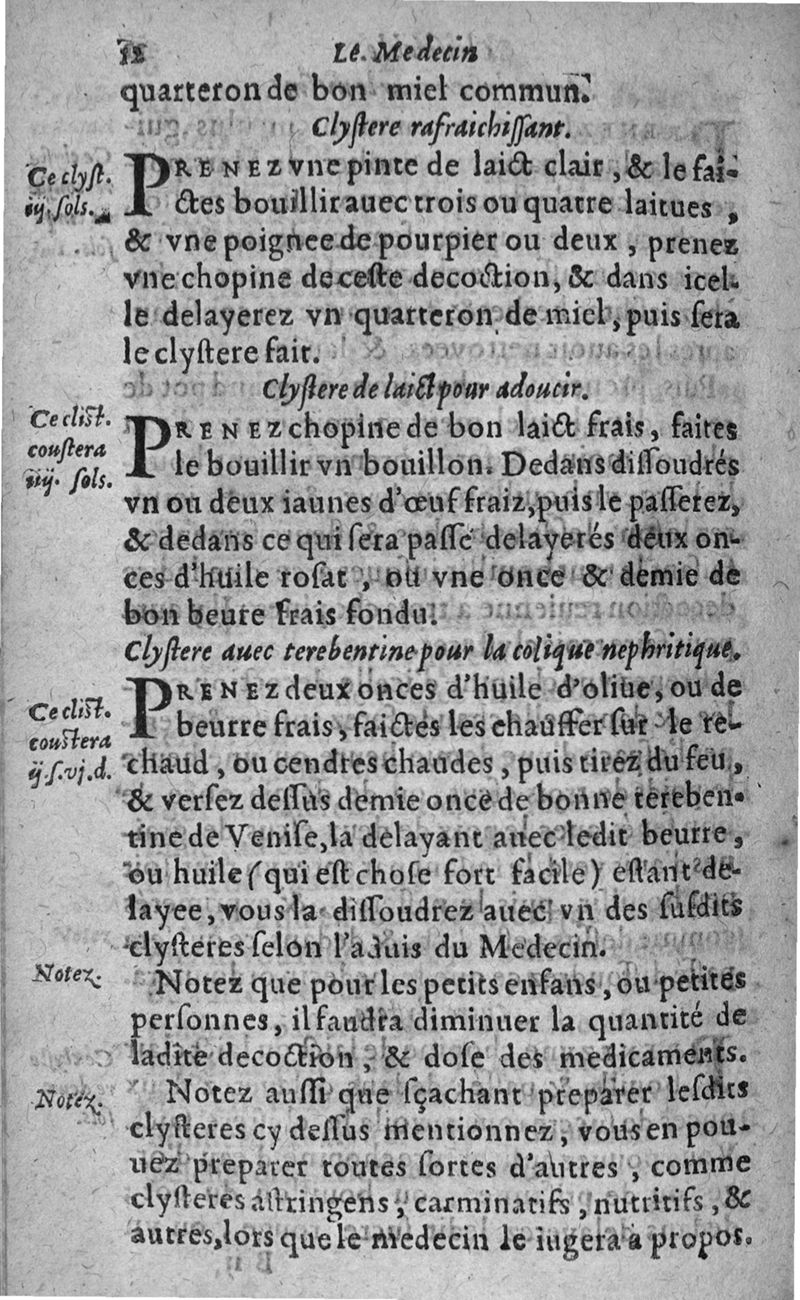 12 Le Medecin
quarteron de bon miel commun.
Clyſtere rafraichiſſant.
Ce clyſt.
iij. ſols.
PRENEZ vne pinte de laict clair, & le fai-
ctes bouillir auec trois ou quatre laitues,
& vne poignee de pourpier ou deux, prenez
vne chopine de ceſte decoction, & dans icel-
le delayerez vn quarteron de miel, puis ſera
le clyſtere fait.
Clyſtere de laict pour adoucir.
Ce cliſt.
couſtera
iiij. ſols.
PRENEZ chopine de bon laict frais, faites
le bouillir vn bouillon. Dedans diſſoudrés
vn ou deux iaunes d'œuf fraiz, puis le paſſerez,
& dedans ce qui ſera paſſé delayerés deux on-
ces d'huile roſat, ou vne once & demie de
bon beure frais fondu.
Clyſtere auec terebentine pour la colique nephritique.
Ce cliſt.
couſtera
ij. ſ. vj. d.
PRENEZ deux onces d'huile d'oliue, ou de
beurre frais, faictes les chauffer ſur le re-
chaud, ou cendres chaudes, puis tirez du feu,
& verſez deſſus demie once de bonne tereben-
tine de Veniſe, la delayant auec ledit beurre,
ou huile (qui eſt choſe fort facile) eſtant de-
layee, vous la diſſoudrez auec vn des ſuſdits
clyſteres ſelon l'aduis du Medecin.
Notez.
Notez que pour les petits enfans, ou petites
perſonnes, il faudra diminuer la quantité de
ladite decoction, & doſe des medicaments.
Notez.
Notez auſſi que ſçachant preparer leſdits
clyſteres cy deſſus mentionnez, vous en pou-
uez preparer toutes ſortes d'autres, comme
clyſteres aſtringens, carminatifs, nutritifs, &
autres, lors que le medecin le iugera à propos.